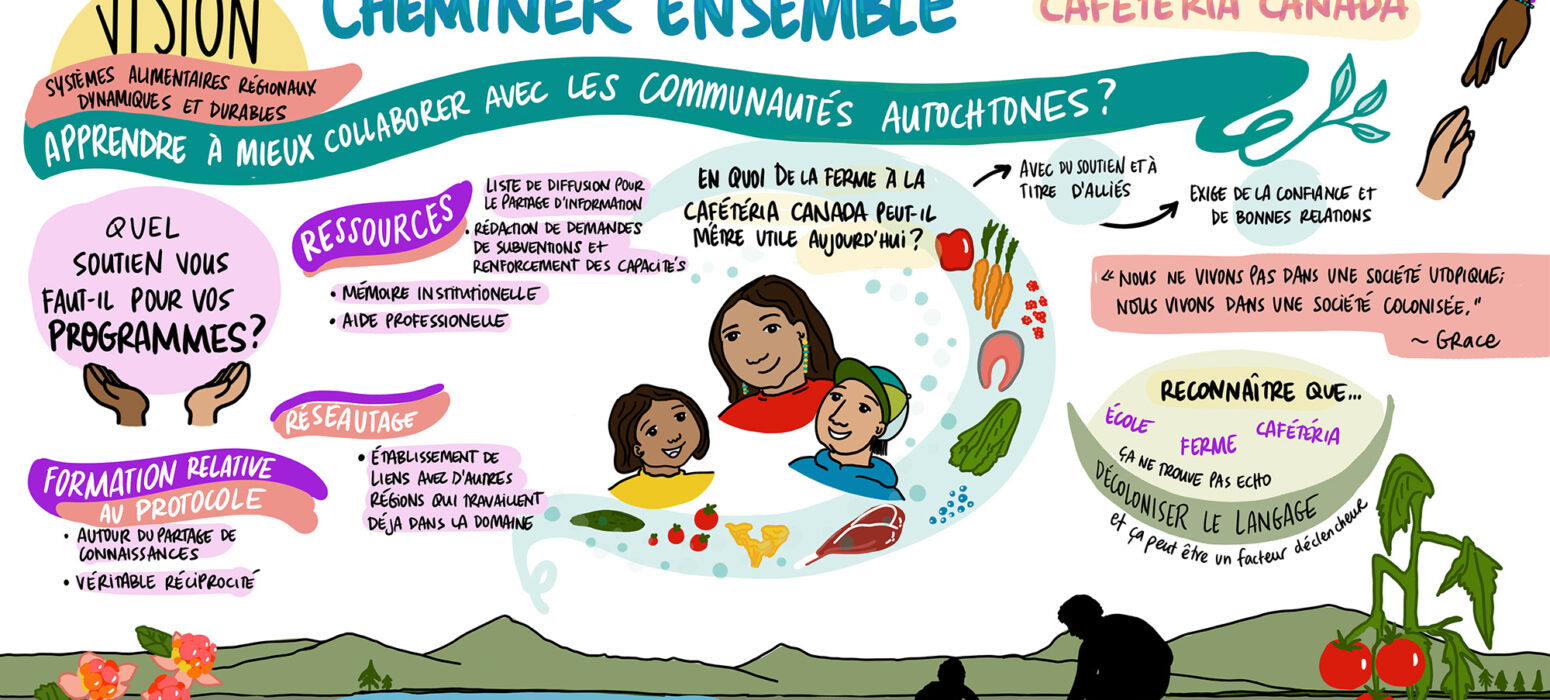 VISION
SYSTÈMES ALIMENTAIRES RÉGIONAUX
DYNAMIQUES ET DURABLES
CHEMINER ENSEMBLE
CAFÉTÉRIA CANADA
APPRENDRE À MIEUX COLLABORER AVEC LES COMMUNAUTÉS AUTOCHTONES?
QUEL
SOUTIEN VOUS
FAUT-IL POUR VOS
PROGRAMMES?
RESSOURCES
LISTE DE DIFFUSION POUR
LE PARTAGE D'INFORMATION
• RÉDACTION DE DEMANDES
DE SUBVENTIONS ET
RENFORCEMENT DES CAPACITÉS
• MÉMOIRE INSTITUTIONELLE
• AIDE PROFESSIONELLE
RÉSEAUTAGE
• ÉTABLISSEMENT DE
LIENS AVEZ D'AUTRES
RÉGIONS QUI TRAVAILLENT
DÉJA DANS LA DOMAINE
FORMATION RELATIVE
AU PROTOCOLE
• AUTOUR DU PARTAGE DE
CONNAISSANCES
• VÉRITABLE RÉCIPROCITÉ
EN QUOI DE LA FERME À LA
CAFÉTÉRIA CANADA PEUT-IL
M'ÊTRE UTILE AUJOURD'HUI?
AVEC DU SOUTIEN ET À
TITRE D'ALLIÉS
EXIGE DE LA CONFIANCE ET
DE BONNES RELATIONS
« NOUS NE VIVONS PAS DANS UNE SOCIÉTÉ UTOPIQUE;
NOUS VIVONS DANS UNE SOCIÉTÉ COLONISÉE."
~ Grace
RECONNAÎTRE QUE...
ÉCOLE
FERME
CAFÉTÉRIA
ÇA NE TROUVE PAS ECHO
DÉCOLONISER LE LANGAGE
et ça peut être un facteur déclencheur